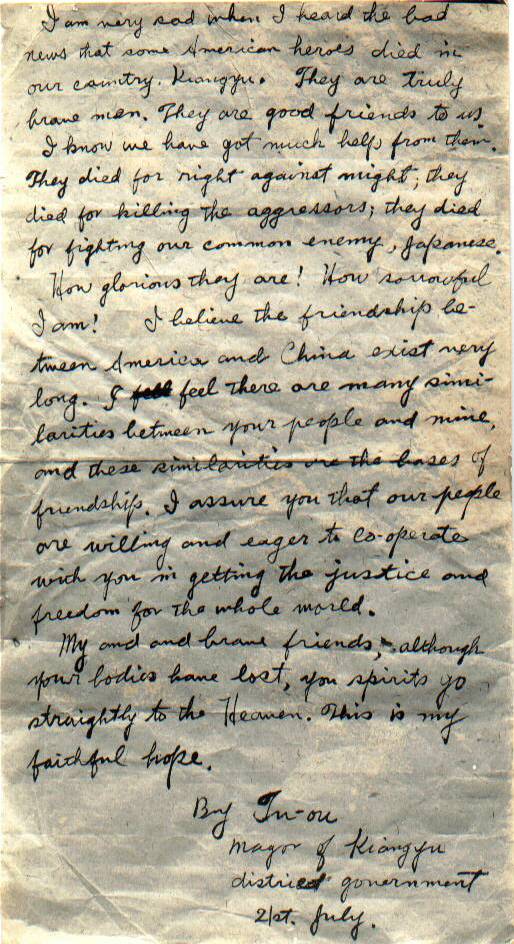 I am very sad when I heard the bad
news that some American heroes died in
our country. Kiangyu. They are truly
brave men. They are good friends to us
I know we have got much help from them.
They died for right against might; they
died for killing the aggressors; they died
for fighting our common enemy, Japanese.
How glorious they are! How sorrowful
I am! I believe the friendship be-
tween America and China exist very
long. I fell feel there are many simi-
larities between your people and mine,
and these similarities are the bases of
friendship. I assure you that our people
are willing and eager to co-operate
with you in getting the justice and
freedom for the whole world.
My and and brave friends, although
your bodies have lost, you spirits go
straightly to the Heaven. This is my
faithful hope.
By Tu-ou
Magor of Kiangyu
district government
21st. July.